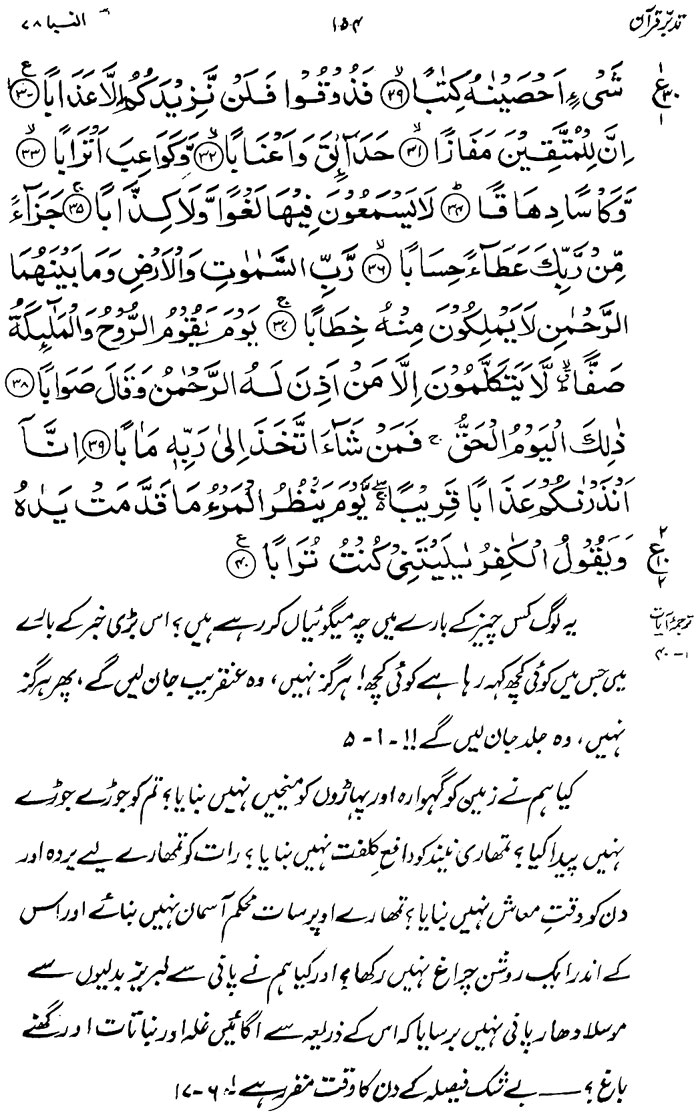 تدبّرِ قرآن ۱۵۴ النبا ۷۸
شَىْءٍ اَحْصَيْنٰهُ كِتٰبًا ﴿۲۹﴾ فَذُوْقُوْا فَلَنْ نَّزِيْدَكُمْ اِلَّا عَذَابًا ﴿۳۰﴾ ع ۳۰ ۱
اِنَّ لِلْمُتَّقِيْنَ مَفَازًا ﴿۳۱﴾ حَدَآئِقَ وَاَعْنَابًا ﴿۳۲﴾ وَّكَوَاعِبَ اَتْرَابًا ﴿۳۳﴾
وَّكَاْسًا دِهَاقًا ﴿۳۴﴾ لَا يَسْمَعُوْنَ فِيْهَا لَغْوًا وَّلَا كِذّٰبًا ﴿۳۵﴾ جَزَآءً
مِّنْ رَّبِّكَ عَطَآءً حِسَابًا ﴿۳۶﴾ رَّبِّ السَّمٰوٰتِ وَالْاَرْضِ وَمَا بَيْنَهُمَا
الرَّحْمٰنِ لَا يَمْلِكُوْنَ مِنْهُ خِطَابًا ﴿۳۷﴾ يَوْمَ يَقُوْمُ الرُّوْحُ وَالْمَلٰٓئِكَةُ
صَفًّا لَّا يَتَكَلَّمُوْنَ اِلَّا مَنْ اَذِنَ لَهُ الرَّحْمٰنُ وَقَالَ صَوَابًا ﴿۳۸﴾
ذٰلِكَ الْيَوْمُ الْحَقُّ ۚ فَمَنْ شَآءَ اتَّخَذَ اِلٰى رَبِّهٖ مَاٰبًا ﴿۳۹﴾ اِنَّآ
اَنْذَرْنٰكُمْ عَذَابًا قَرِيْبًا يَّوْمَ يَنْظُرُ الْمَرْءُ مَا قَدَّمَتْ يَدٰهُ
وَيَقُوْلُ الْكٰفِرُ يٰلَيْتَنِىْ كُنْتُ تُرَابًا ﴿۴۰﴾ ۲ ع ۱۰ ۲
ترجمۂ آیات
۱-۴۰
یہ لوگ کس چیز کے بارے میں چہ میگوئیاں کر رہے ہیں؟ اس بڑی خبر کے بارے
میں جس میں کوئی کچھ کہہ رہا ہے کوئی کچھ! ہرگز نہیں، وہ عنقریب جان لیں گے، پھر ہرگز
نہیں، وہ جلد جان لیں گے!! ۱-۵
کیا ہم نے زمین کو گہوارہ اور پہاڑوں کو میخیں نہیں بنایا؟ تم کو جوڑے جوڑے
نہیں پیدا کیا؟ تمھاری نیند کو دافعِ کلفت نہیں بنایا؟ رات کو تمھارے لیے پردہ اور
دن کو وقتِ معاش نہیں بنایا؟ تمھارے اوپر سات محکم آسمان نہیں بنائے اور اس
کے اندر ایک روشن چراغ نہیں رکھا؟ اور کیا ہم نے پانی سے لبریز بدلیوں سے
موسلا دھار پانی نہیں برسایا کہ اس کے ذریعہ سے اگائیں غلہ اور نباتات اور گھنے
باغ؟ —— بے شک فیصلہ کے دن کا وقت مقرر ہے! ۶-۱۷